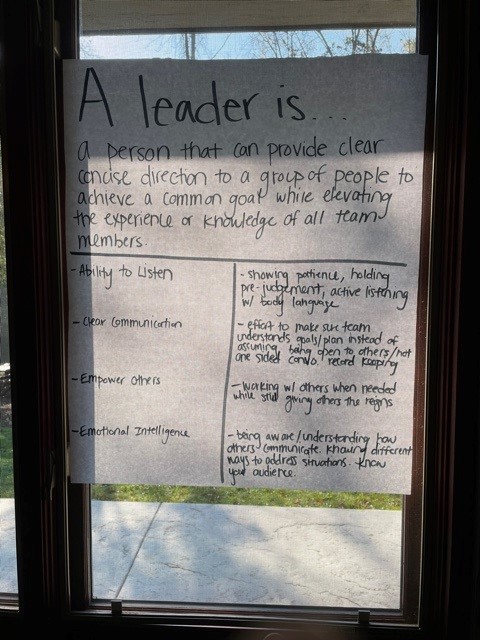 A leader is...
a person that can provide clear
concise direction to a group of people to
achieve a common goal while elevating
the experience or knowledge of all team
members.
- Ability to Listen
- showing patience, holding
pre-judgement, active listening
w/ body language
- Clear Communication
- effort to make sure team
understands goals/plan instead of
assuming, being open to others/not
one sided convo. record keeping
- Empower Others
- Working w/ others when needed
while still giving others the reigns
- Emotional Intelligence
- being aware/understanding how
others communicate. Knowing different
ways to address situations. Know
your audience.